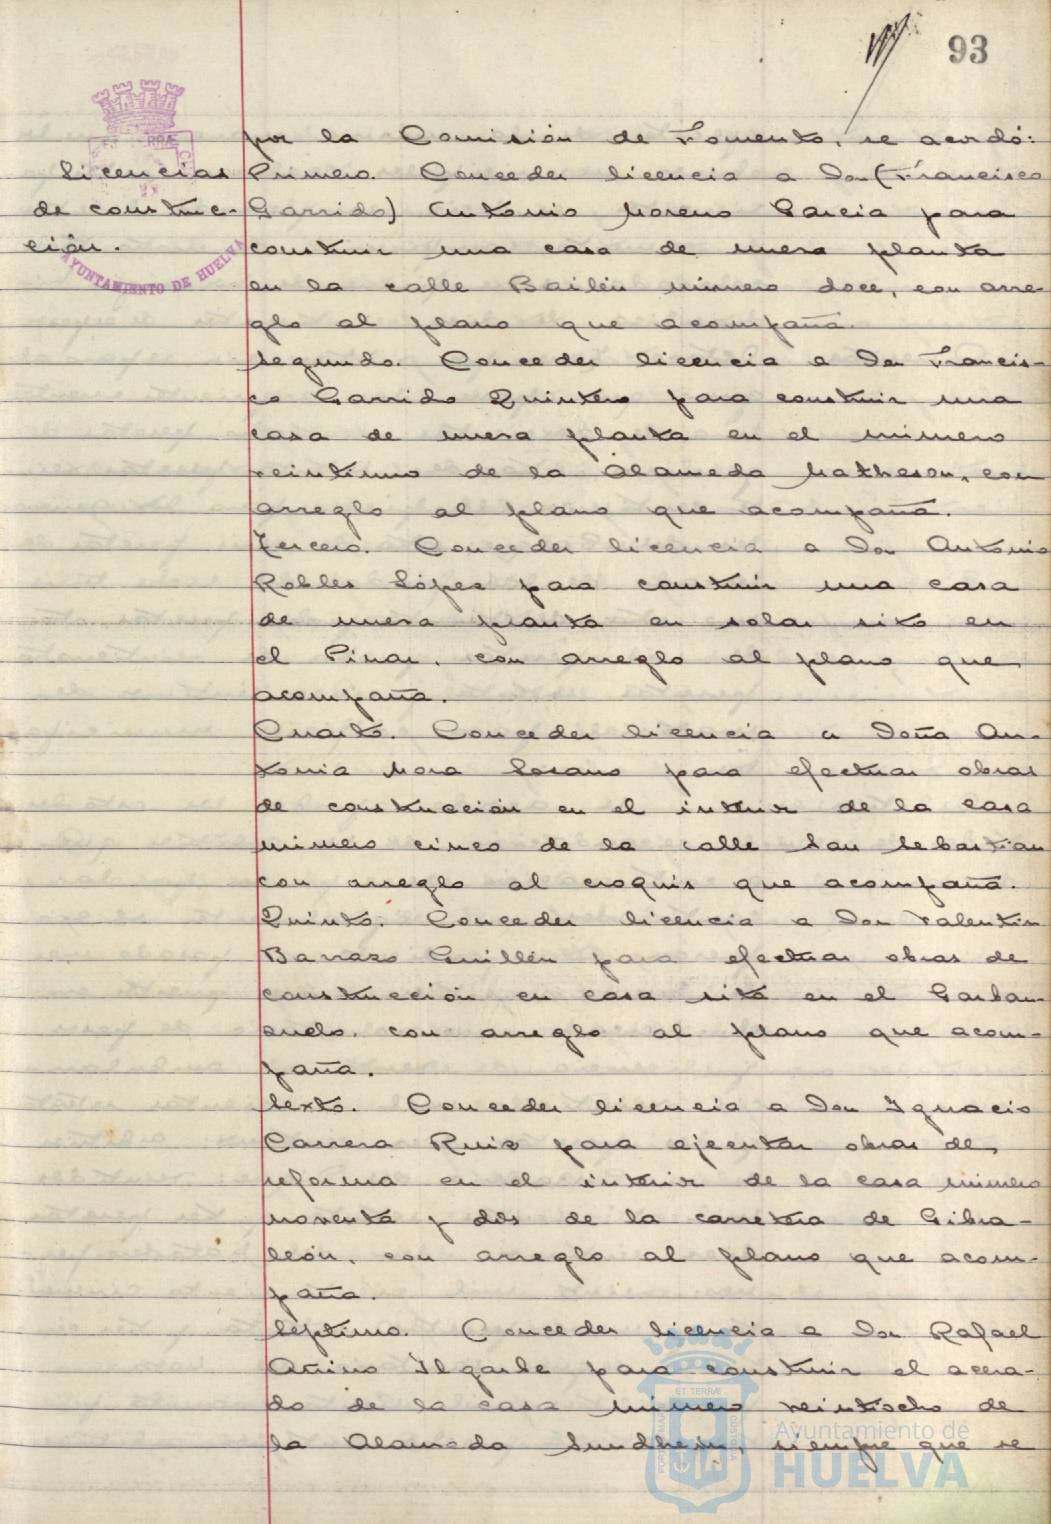 93
por la Comisión de Fomento, se acordó:
Licencias
de construc-
ción.
AYUNTAMIENTO DE HUELVA
Primero. Conceder licencia a Don (Francisco
Garrido) Antonio Moreno Garcia para
construir una casa de nueva planta
en la calle Bailén número doce, con arre-
glo al plano que acompaña.
Segundo. Conceder licencia a Don Francis-
co Garrido Quintero para construir una
casa de nueva planta en el número
veintiuno de la Alameda Matheson, con
arreglo al plano que acompaña.
Tercero. Conceder licencia a Don Antonio
Robles López para construir una casa
de nueva planta en solar sito en
el Pinar, con arreglo al plano que
acompaña.
Cuarto. Conceder licencia a Doña An-
tonia Mora Losano para efectuar obras
de construcción en el interior de la casa
número cinco de la calle San Sebastian
con arreglo al croquis que acompaña.
Quinto. Conceder licencia a Don Valentin
Barraso Guillén para efectuar obras de
construcción en casa sita en el Garban-
zuelo, con arreglo al plano que acom-
paña.
Sexto. Conceder licencia a Don Ignacio
Carrera Ruiz para ejecutar obras de
reforma en el interior de la casa número
noventa y dos de la carretera de Gibra-
león, con arreglo al plano que acom-
paña.
Séptimo. Conceder licencia a Don Rafael
para construir el acera-
do de la casa número veintiocho de
la Alameda Sundheim, siempre que se
Ayuntamiento de
HUELVA